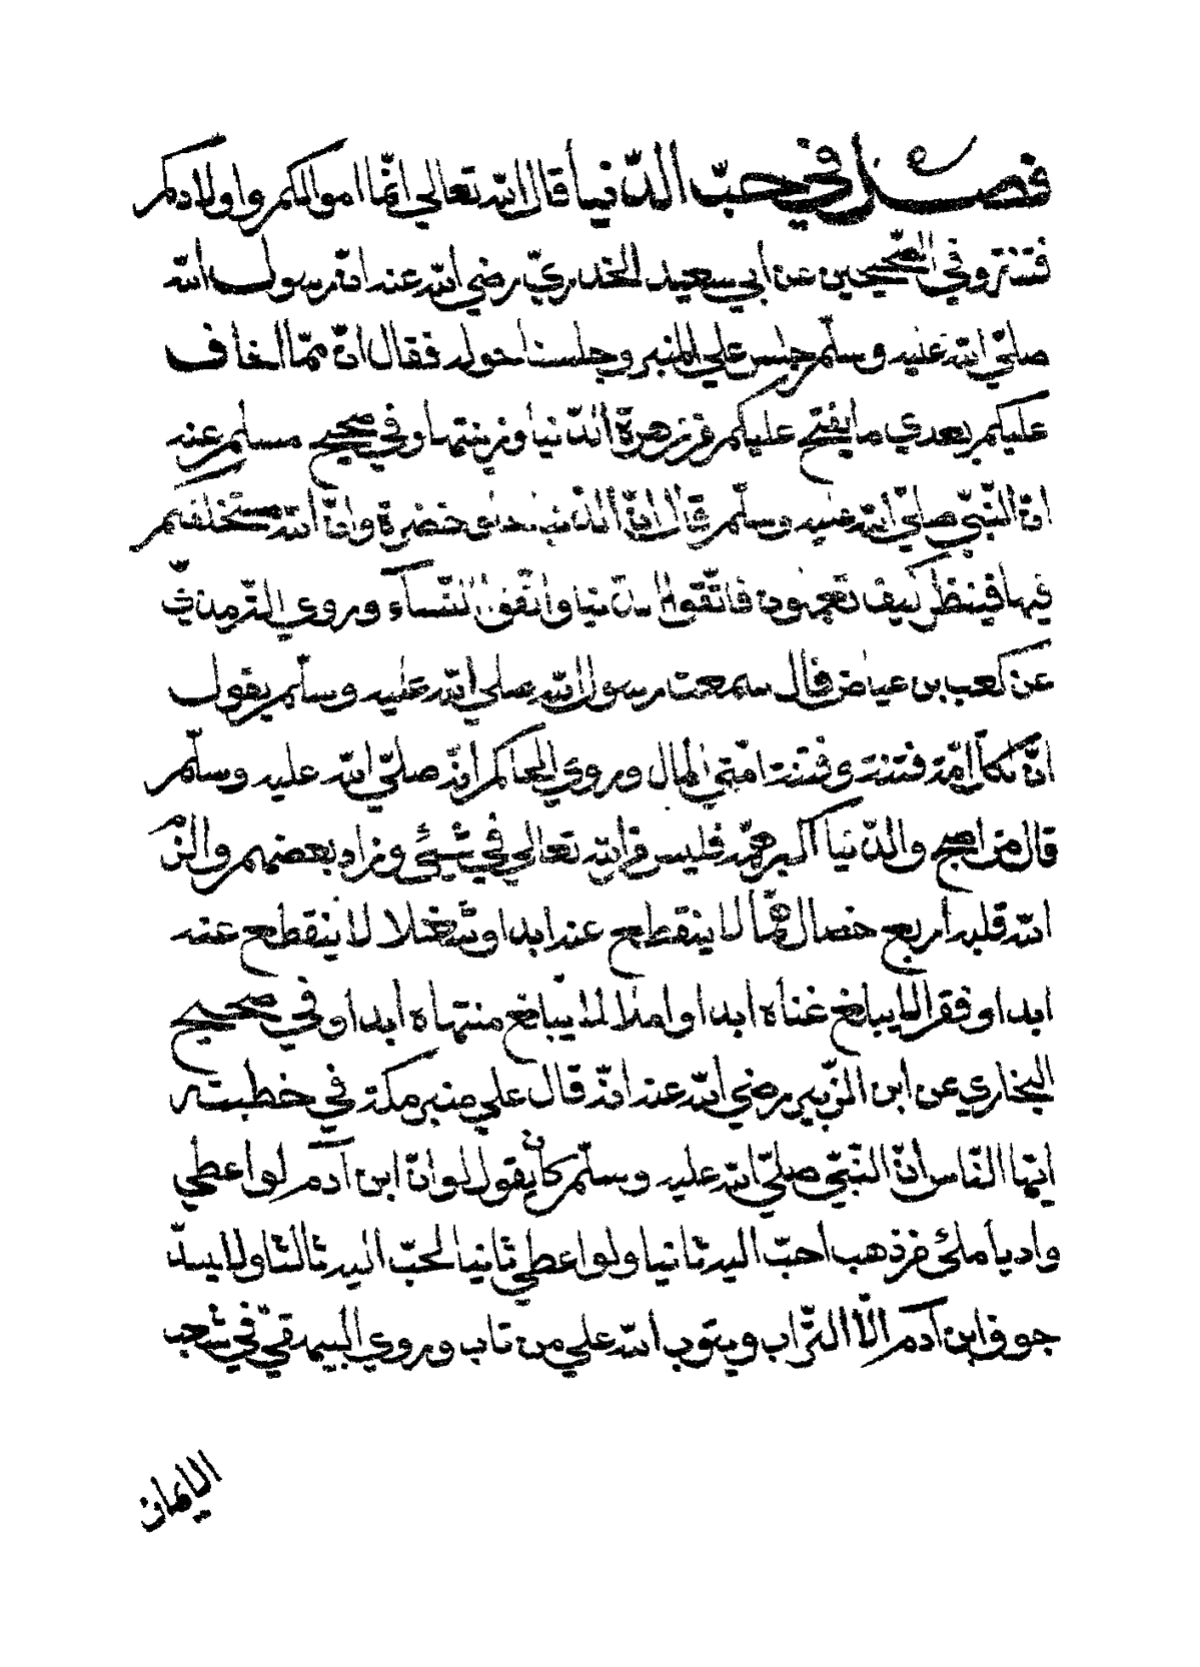 فصل في حبّ الدّنيا قال الله تعالي انّما اموالكم واولادكم
فتنة وفي الصّحيحين عن ابي سعيد الخدريّ رضي الله عنه انّ رسول الله
صلّي الله عليه وسلّم جلس علي المنبر وجلسنا حوله فقال انّ ممّا اخاف
عليكم بعدي ما يفتح عليكم من زهرة الدّنيا وزينتها وفي صحيح مسلم عنه
انّ النّبيّ صلّي الله عليه وسلّم قال انّ الدّنيا حلوة خضرة وانّ الله مستخلفكم
فيها فينظر كيف تعملون فاتّقوا الدّنيا واتّقوا النّسآء وروي التّرمذيّ
عن كعب بن عياض قال سمعت رسول الله صلي الله عليه وسلّم يقول
انّ لكلّ امّة فتنة وفتنة امّتي المال وروي الحاكم انّه صلّي الله عليه وسلّم
قال من اصبح والدّنيا اكبر همّه فليس من الله تعالي في شيئ وزاد بعضهم والزم
الله قلبه اربع خصال همّا لا ينقطع عنه ابدا وشغلا لا ينقطع عنه
ابدا وفقرا لا يبلغ غناه ابدا واملا لا يبلغ منتهاه ابدا وفي صحيح
البخاري عن ابن الزّبير رضي الله عنه انّه قال علي منبر مكة في خطبته
ايّها النّاس انّ النّبيّ صلّي الله عليه وسلّم كان يقول لو انّ ابن آدم لو اعطي
واديا ملئ من ذهب احبّ اليه ثانيا ولو اعطي ثانيا احبّ اليه ثالثا ولا يسدّ
جوف ابن آدم الّا التّراب ويتوب الله علي من تاب وروي البيهقيّ في شعب
الايمان